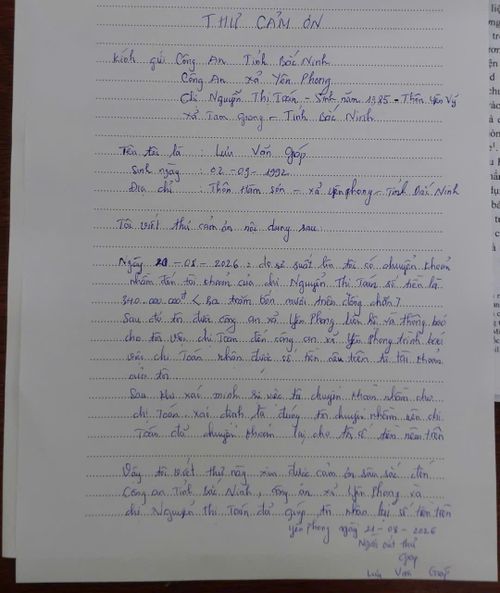 THƯ CẢM ƠN
Kính gửi Công An Tỉnh Bắc Ninh
Công An xã Yên Phong
Chị Nguyễn Thị Toán - Sinh năm 1985 - Thôn Yên Vỹ
xã Tam Giang - Tỉnh Bắc Ninh
Tên tôi là : Lưu Văn Góp
Sinh ngày : 02-09-1992
Địa chỉ : Thôn xã Yên phong - Tỉnh Bắc Ninh
Tôi viết thư cảm ơn nội dung sau:
Ngày 20-08-2026 : do sơ suất lên tôi có chuyển khoản
nhầm đến tài khoản của chị Nguyễn Thị Toán số tiền là
340.000.000đ < Ba trăm bốn mươi triệu đồng chẵn >
Sau đó tôi được công an xã Yên Phong liên hệ và thông báo
cho tôi với chị Toán đến công an xã Yên Phong trình báo
việc chị Toán nhận được số tiền nêu trên từ tài khoản
của tôi
Sau khi xác minh sự việc tôi chuyển khoản nhầm cho
chị Toán xác định là đúng tôi chuyển nhầm nên chị
Toán đã chuyển khoản lại cho tôi số tiền nêu trên
Vậy tôi viết thư này xin được cảm ơn sâu sắc đến
Công an Tỉnh Bắc Ninh, Công an xã Yên Phong và
chị Nguyễn Thị Toán đã giúp tôi nhận lại số tiền trên
Yên phong ngày 21-08-2026
Người viết thư
Góp
Lưu Văn Góp